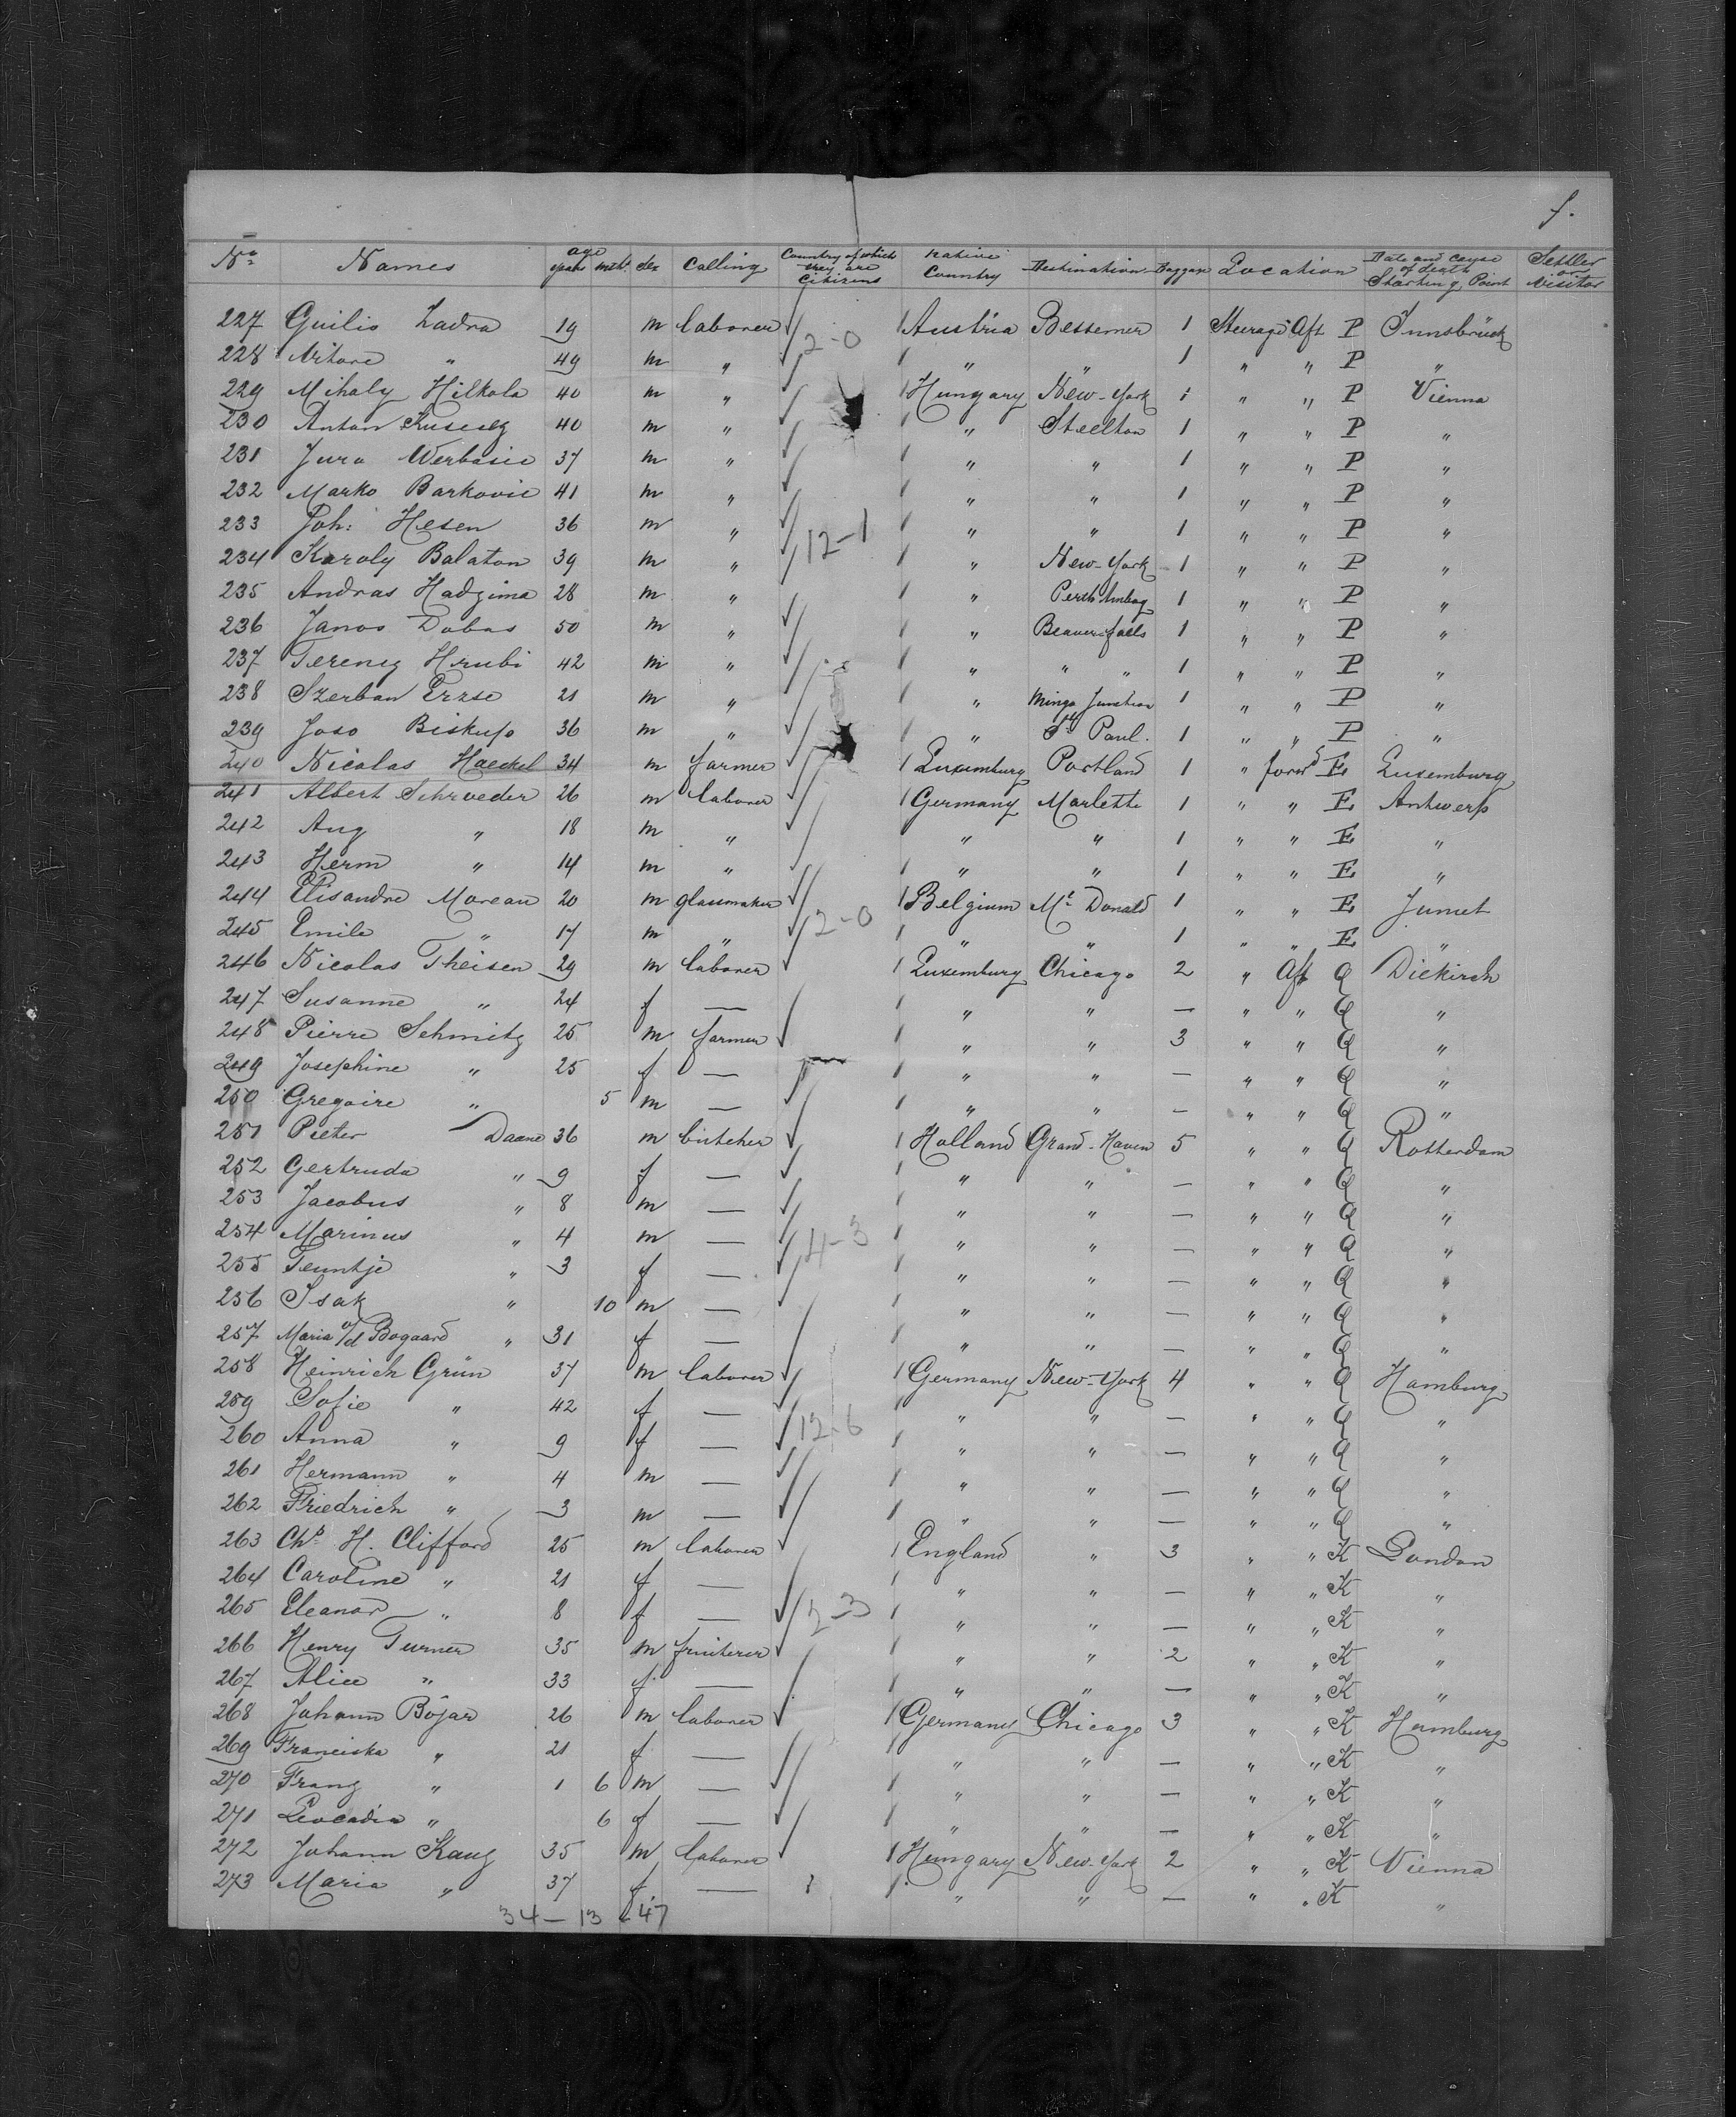 f.
No Names age years mth. sex Calling Country of which they are Citizens native Country Destination Baggage Location Date and cause of death Starting Point Settler or Visitor
227 Guilio Zadra 19 m laborer 2-0 1 Austria Bessemer 1 Steerage Aft P Innsbrück
228 " 49 m " 1 " " 1 " " P "
229 Mihaly Hilkola 40 m " 1 Hungary New-York 1 " " P Vienna
230 Anton 40 m " 1 " Steelton 1 " " P "
231 Jura Werbasic 37 m " 1 " " 1 " " P "
232 Marko Barkovic 41 m " 1 " " 1 " " P "
233 Joh: Hesen 36 m " 12-1 1 " " 1 " " P "
234 Karoly Balaton 39 m " 1 " New-York 1 " " P "
235 Andras Hadzima 28 m " 1 " Perth Amboy 1 " " P "
236 Janos Dobas 50 m " 1 " Beaver-falls 1 " " P "
237 Ferencz Hrubi 42 m " 1 " " " 1 " " P "
238 Szerban Erzse 21 m " 1 " Mingo Junction 1 " " P "
239 Joso Biskup 36 m " 1 " St Paul. 1 " " P "
240 Nicolas Haeckel 34 m farmer 1 Luxemburg Portland 1 " forwd E Luxemburg
241 Albert Schroeder 26 m laborer 1 Germany Marlette 1 " " E Antwerp
242 Aug " 18 m " 1 " " 1 " " E "
243 Herm " 14 m " 1 " " 1 " " E "
244 Elisandre Moreau 20 m glassmaker 2-0 1 Belgium Mc Donald 1 " " E Jumet
245 Emile " 17 m " 1 " " 1 " " E "
246 Nicolas Theisen 29 m laborer 1 Luxemburg Chicago 2 " Aft Q Diekirch
247 Susanne " 24 f — 1 " " — " " Q "
248 Pierre Schmitz 25 m farmer 1 " " 3 " " Q "
249 Josephine " 25 f — 1 " " — " " Q "
250 Gregoire " 5 m — 1 " " — " " Q "
251 Pieter Daane 36 m butcher 1 Holland Grand-Haven 5 " " Q Rotterdam
252 Gertruda " 9 f — 1 " " — " " Q "
253 Jacobus " 8 m — 1 " " — " " Q "
254 Marinus " 4 m — 4-3 1 " " — " " Q "
255 Teuntje " 3 f — 1 " " — " " Q "
256 Isak " 10 m — 1 " " — " " Q "
257 Maria v/d Bogaard " 31 f — 1 " " — " " Q "
258 Heinrich Grün 37 m laborer 1 Germany New-York 4 " " Q Hamburg
259 Sofie " 42 f — 12-6 1 " " — " " Q "
260 Anna " 9 f — 1 " " — " " Q "
261 Hermann " 4 m — 1 " " — " " Q "
262 Friedrich " 3 m — 1 " " — " " Q "
263 Chs H. Clifford 25 m laborer 1 England " 3 " " K London
264 Caroline " 21 f — 1 " " — " " K "
265 Eleanor " 8 f — 2-3 1 " " — " " K "
266 Henry Turner 35 m fruiterer 1 " " 2 " " K "
267 Alice " 33 f — 1 " " — " " K "
268 Johann Bojar 26 m laborer 1 Germany Chicago 3 " " K Hamburg
269 Franciska " 21 f — 1 " " — " " K "
270 Franz " 1 6 m — 1 " " — " " K "
271 Leocadia " 6 f — 1 " " — " " K "
272 Johann Kanz 35 m laborer 1 Hungary New-York 2 " " K Vienna
273 Maria " 37 f — 1 " " — " " K "
34-13 47